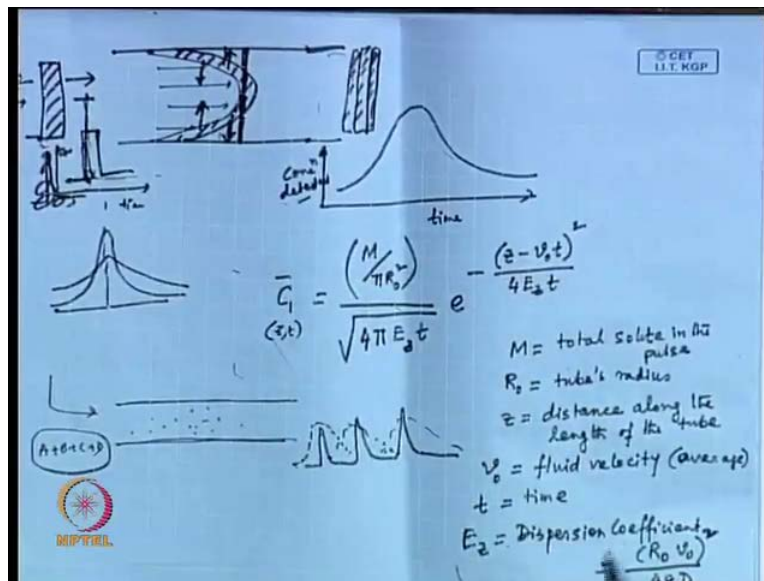 © CET
I.I.T. KGP
Concⁿ
detected
time
C̄₁ = (M/πR₀²) / √(4πE_z t) e^ -(z - v₀t)² / 4E_z t
(z,t)
M = total solute in the pulse
R₀ = tube's radius
z = distance along the
length of the tube
v₀ = fluid velocity (average)
t = time
E_z = Dispersion Coefficient
(R₀ v₀)²
A+B+C+D
NPTEL